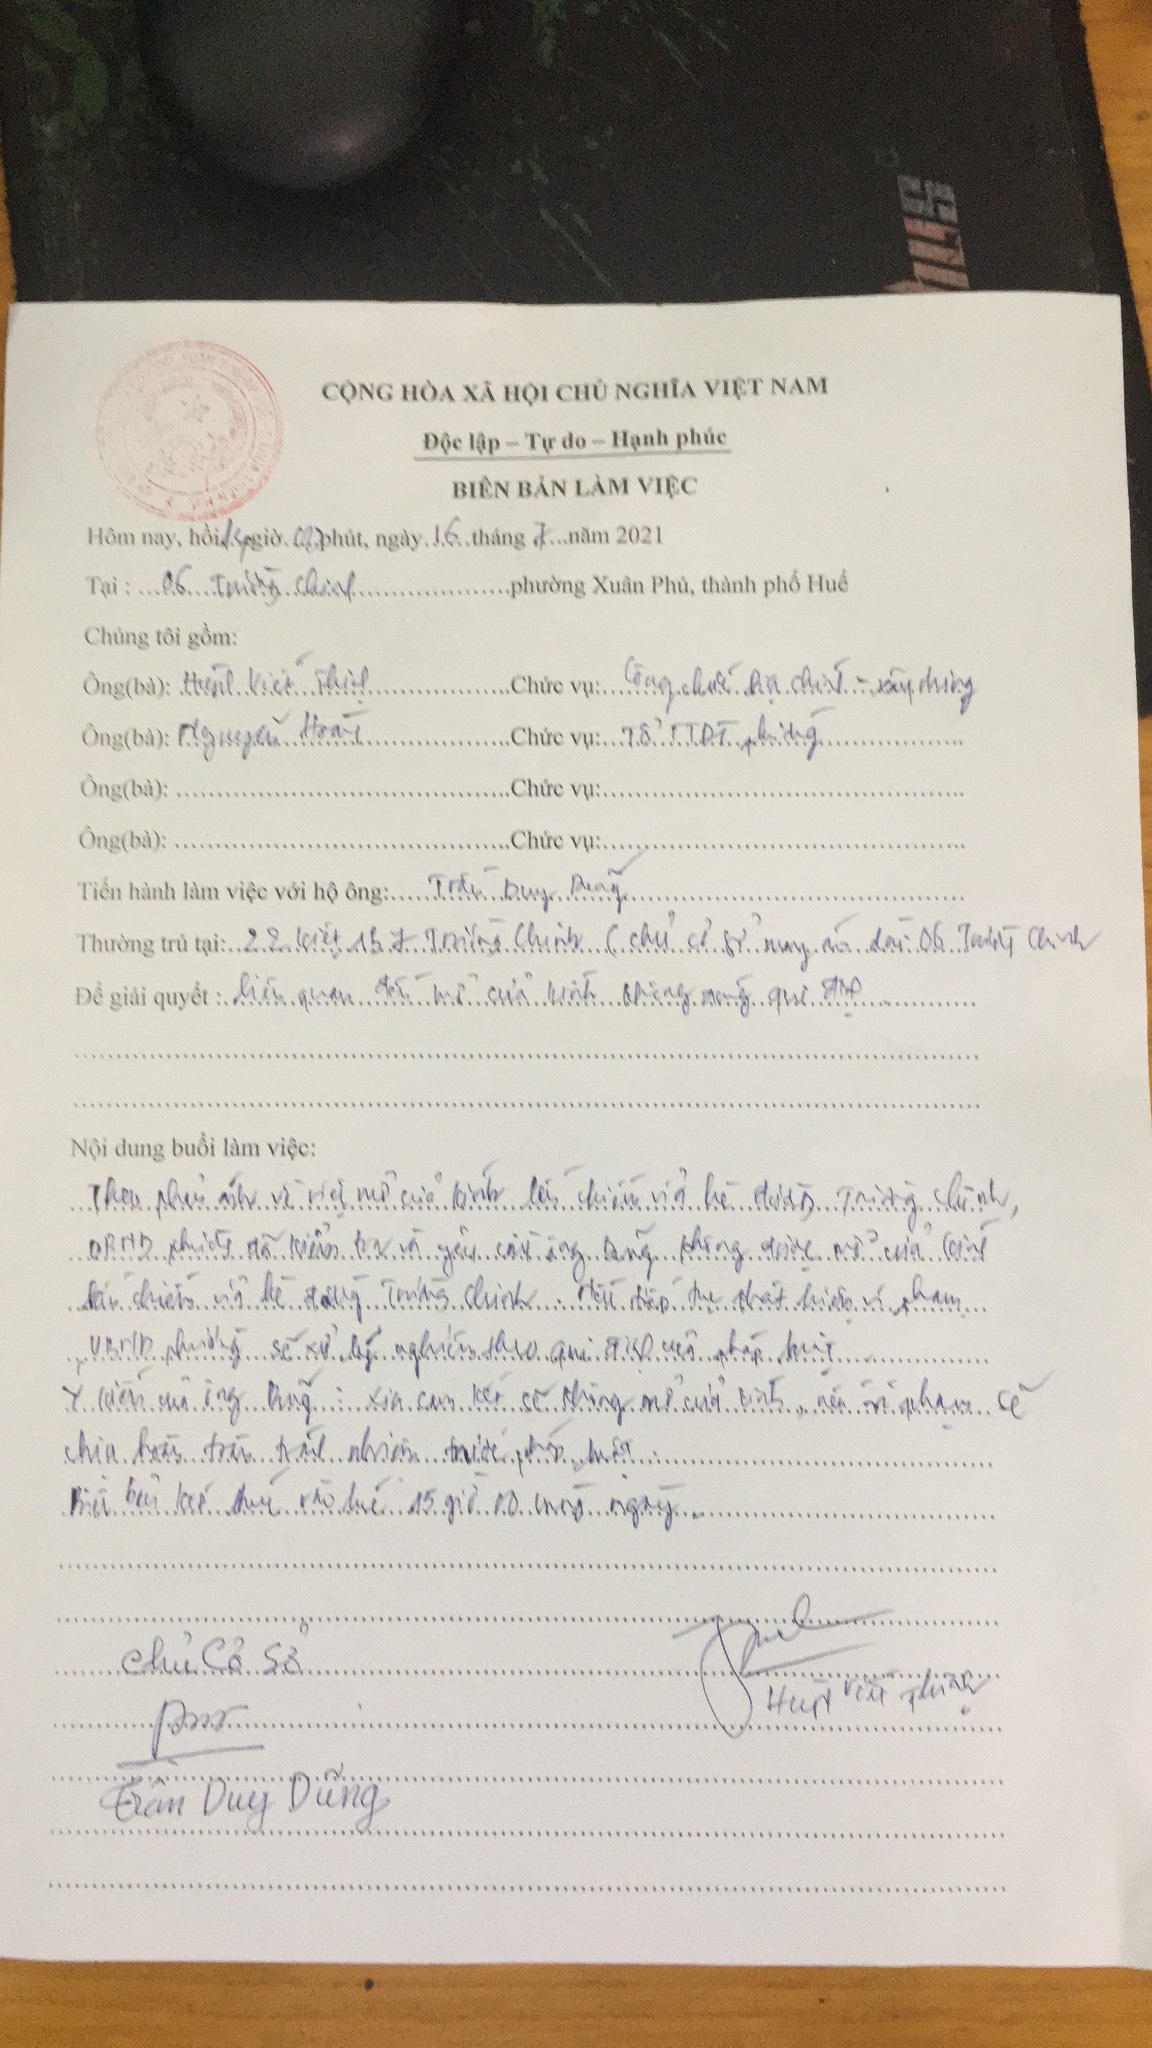 CỘNG HÒA XÃ HỘI CHỦ NGHĨA VIỆT NAM
Độc lập – Tự do – Hạnh phúc
BIÊN BẢN LÀM VIỆC
Hôm nay, hồi 14 giờ 00 phút, ngày 16 tháng 7 năm 2021
Tại : 06 Trường Chinh phường Xuân Phú, thành phố Huế
Chúng tôi gồm:
Ông(bà): Huỳnh Viết Thịnh Chức vụ: Công chức địa chính - xây dựng
Ông(bà): Nguyễn Hoài Chức vụ: Tổ TTĐT phường
Ông(bà): Chức vụ:
Ông(bà): Chức vụ:
Tiến hành làm việc với hộ ông: Trần Duy Dũng
Thường trú tại: 22 kiệt 131 Trường Chinh (chủ cơ sở may áo dài: 06 Trường Chinh
Để giải quyết : liên quan đến mở cửa kính không đúng qui định
Nội dung buổi làm việc:
Theo phản ánh về việc mở cửa kính lấn chiếm vỉa hè đường Trường Chinh,
UBND phường đã kiểm tra và yêu cầu ông Dũng không được mở cửa kính
lấn chiếm vỉa hè đường Trường Chinh. Nếu tiếp tục phát hiện vi phạm
UBND phường sẽ xử lý nghiêm theo qui định của pháp luật
Ý kiến của ông Dũng : xin cam kết sẽ không mở cửa kính, nếu vi phạm sẽ
chịu hoàn toàn trách nhiệm trước pháp luật.
Biên bản kết thúc vào lúc 15 giờ 00 cùng ngày.
Chủ Cơ Sở
Huỳnh Viết Thịnh
Trần Duy Dũng